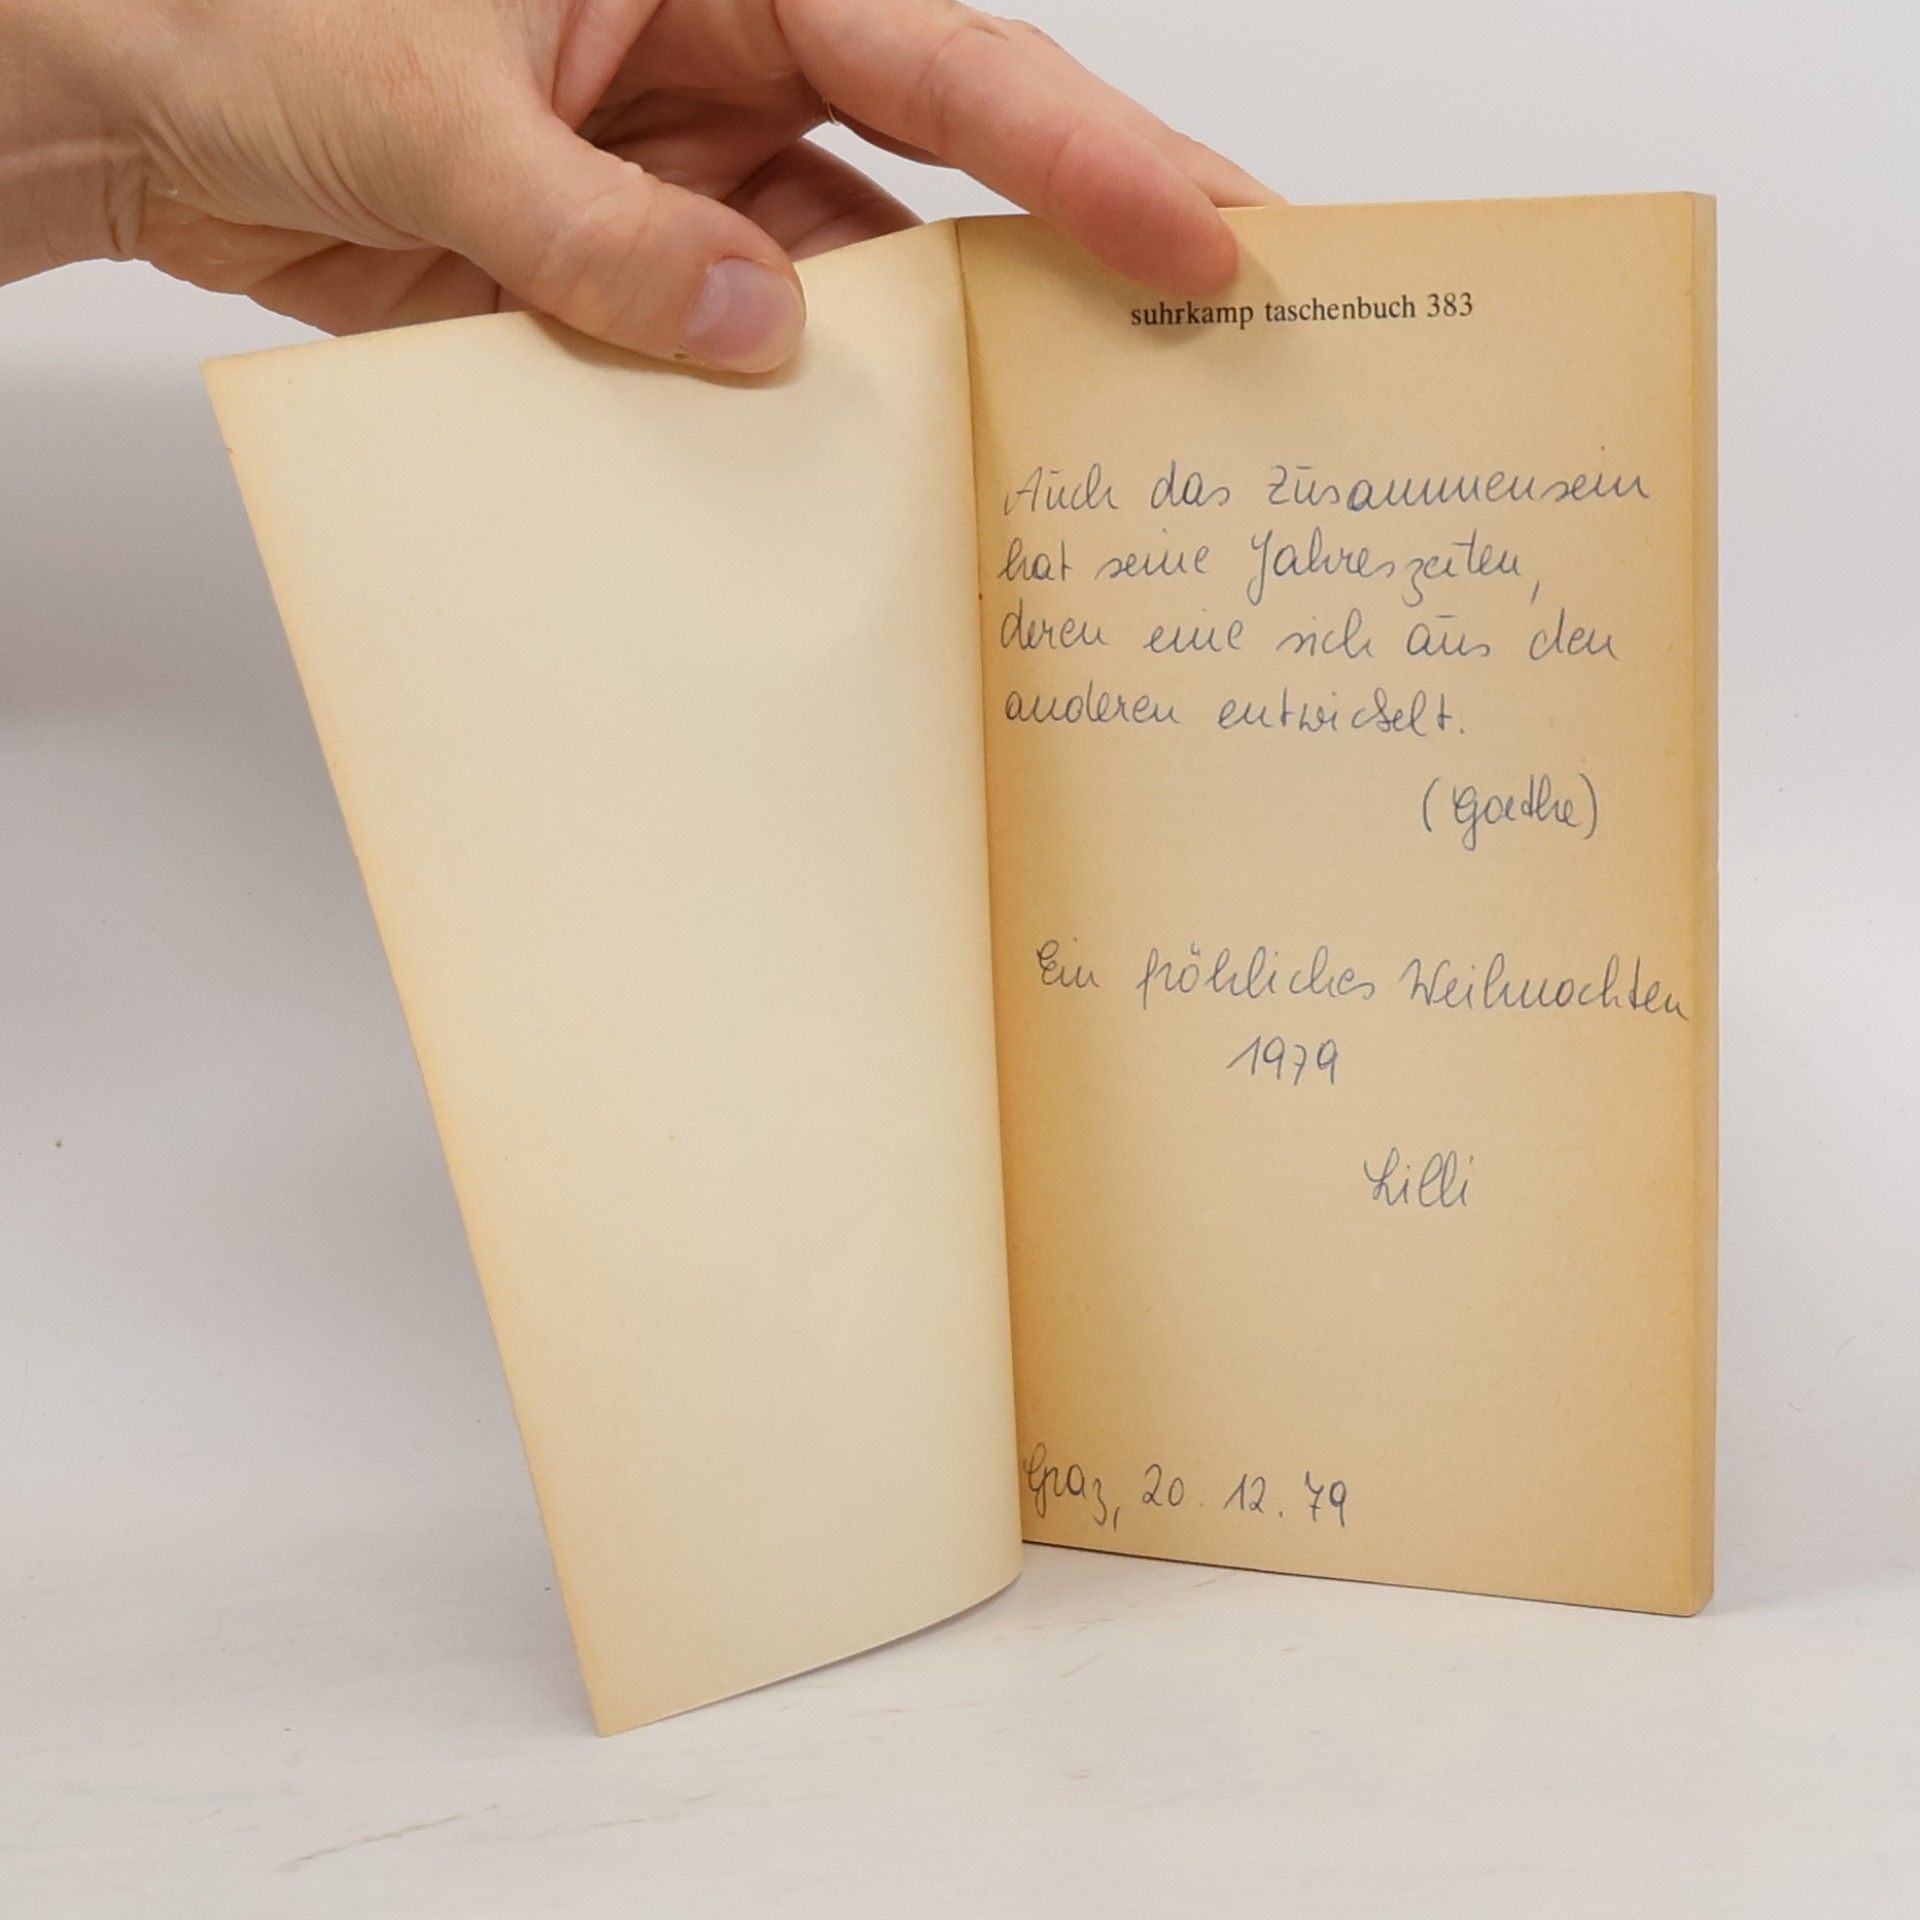 suhrkamp taschenbuch 383
Auch das Zusammensein
hat seine Jahreszeiten,
deren eine sich aus den
anderen entwickelt.
(Goethe)
Ein fröhliches Weihnachten
1979
Lilli
Graz, 20. 12. 79